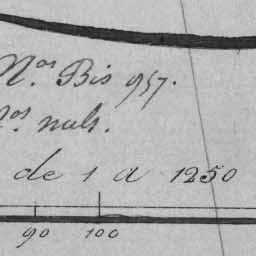 Nos Bis 957.
Nos nuls.
de 1 a 1250
90 100